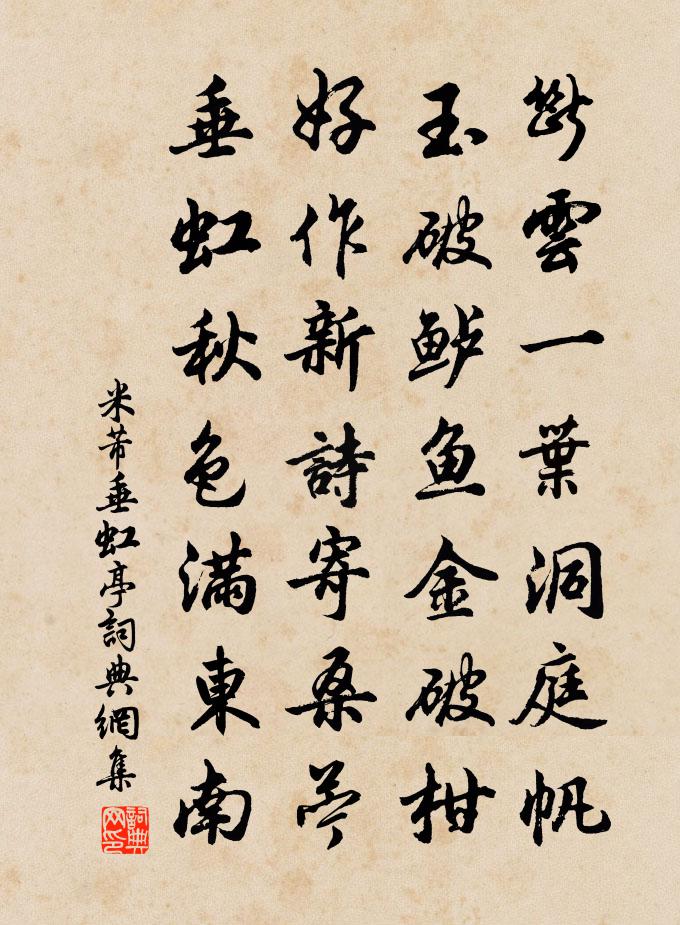 斷雲一葉洞庭帆
玉破鲈鱼金破柑
好作新詩寄桑苎
垂虹秋色滿東南
米芾垂虹亭詞典網集
詞典网印